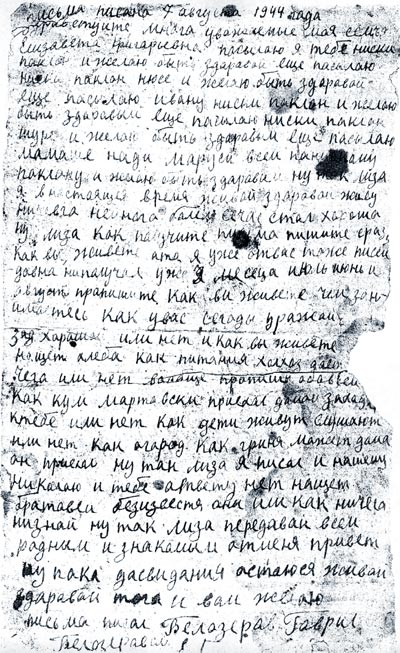 письма писана 7 августа 1944 года
здравствуйте многа уважаемые мая семя
Елизавета Григаревна пасылаю я тебе ниски
паклон и желаю быть здаравой еще пасалаю
ниски паклон нюсе и желаю быть здаравой
еще пасылаю ивану ниски паклон и желаю
быть здаравым еще пасылаю ниски паклон
шури и желаю быть здаравым еще пасылаю
мамаше нади марусе всем пани
паклону и желаю быть здаравыи ну так лиза
я внастоящея время живой здаравой живу
ничевга неснога сечас стал хароша
ну лиза как палучите письма пишите сразу
как вы живете ата я уже отвас тоже писем
давна ниполучал уже я месеца июль июни и
август прапишите как ви живете чем зан
имаетесь как увас сегоды уражай
хароший или нет и как вы живете
нащет хлеба как питания калхоз дает
чево или нет вапще прапиши обовсем
как кум мартавски приехал дамой захад
ктебе или нет как дети живут слушают
или нет как огарод как гриня может дама
он приехал ну так лиза я писал и нашему
николаю и тебе атвету нет нащет
братавей безизвестя они или как ничега
низнай ну так лиза передавай всем
родным и знакомым отменя привет
ну пака дасвидания остаюся живой
здаравай тога и вам желаю
письма писал Белозерав Гаврил
Белозеравой